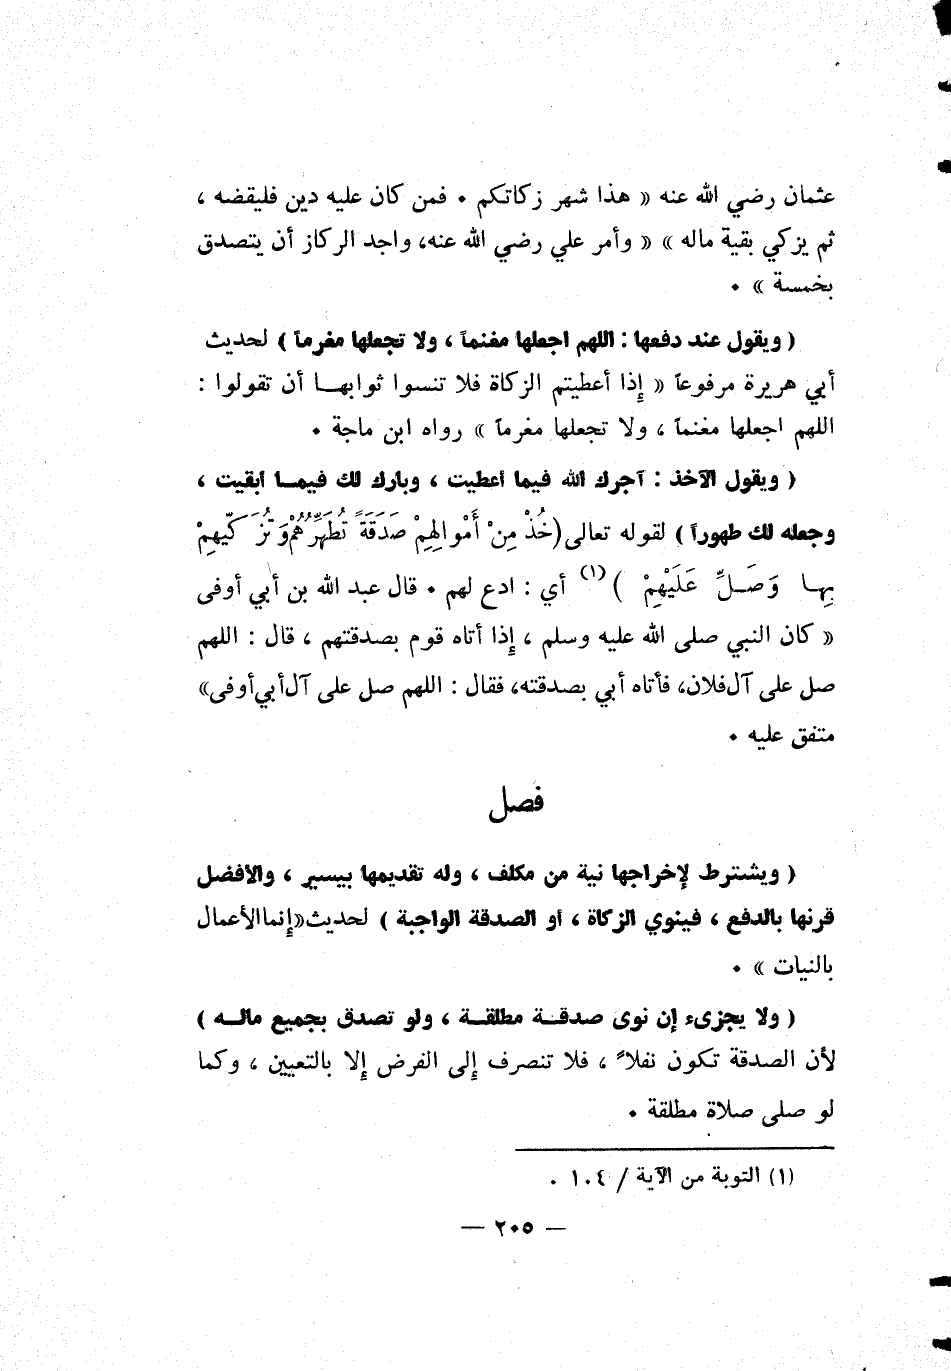 عثمان رضي الله عنه « هذا شهر زكاتكم • فمن كان عليه دين فليقضه ،
ثم يزكي بقية ماله » « وأمر علي رضي الله عنه، واجد الركاز أن يتصدق
بخمسة » •
( ويقول عند دفعها : اللهم اجعلها مغنماً ، ولا تجعلها مغرماً ) لحديث
أبي هريرة مرفوعاً « إذا أعطيتم الزكاة فلا تنسوا ثوابهـا أن تقولوا :
اللهم اجعلها مغنماً ، ولا تجعلها مغرماً » رواه ابن ماجة •
( ويقول الآخذ : آجرك الله فيما أعطيت ، وبارك لك فيمـا أبقيت ،
وجعله لك طهوراً ) لقوله تعالى (خُذْ مِنْ أَمْوالِهِمْ صَدَقَةً تُطَهِّرُهُمْ وَتُزَكِّيهِمْ
بِهـا وَصَـلِّ عَلَيْهِمْ )(١) أي : ادع لهم • قال عبد الله بن أبي أوفى
« كان النبي صلى الله عليه وسلم ، إذا أتاه قوم بصدقتهم ، قال : اللهم
صل على آل فلان، فأتاه أبي بصدقته، فقال : اللهم صل على آل أبي أوفى»
متفق عليه •
فصل
( ويشترط لإخراجها نية من مكلف ، وله تقديمها بيسير ، والأفضل
قرنها بالدفع ، فينوي الزكاة ، أو الصدقة الواجبة ) لحديث «إنما الأعمال
بالنيات » •
( ولا يجزىء إن نوى صدقـة مطلقـة ، ولو تصدق بجميع مالـه )
لأن الصدقة تكون نفلاً ، فلا تنصرف إلى الفرض إلا بالتعيين ، وكما
لو صلى صلاة مطلقة •
(١) التوبة من الآية / ١٠٤ .
— ٢٠٥ —